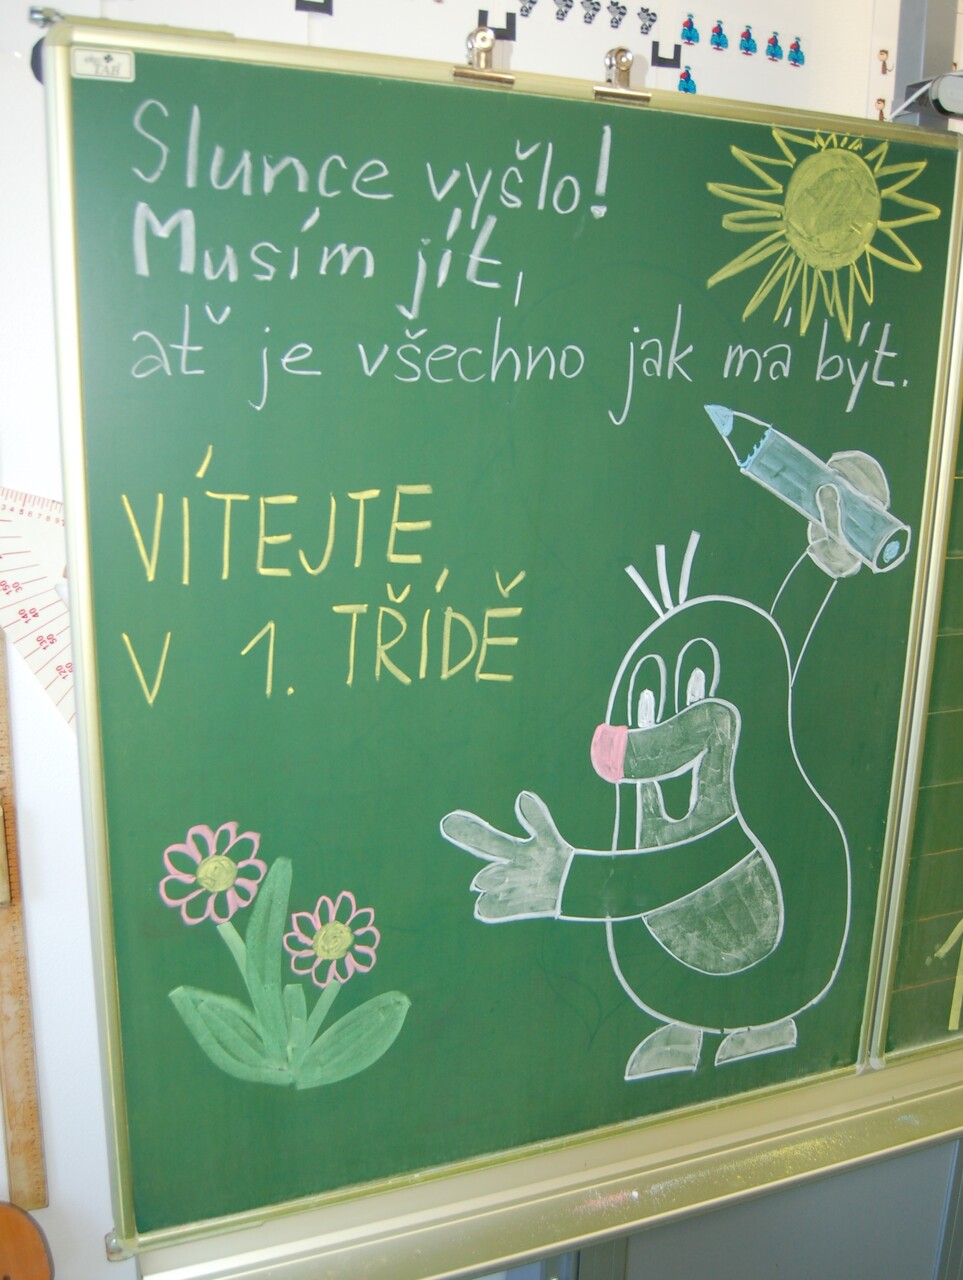 Slunce vyšlo!
Musím jít,
ať je všechno jak má být.
VÍTEJTE
V 1. TŘÍDĚ